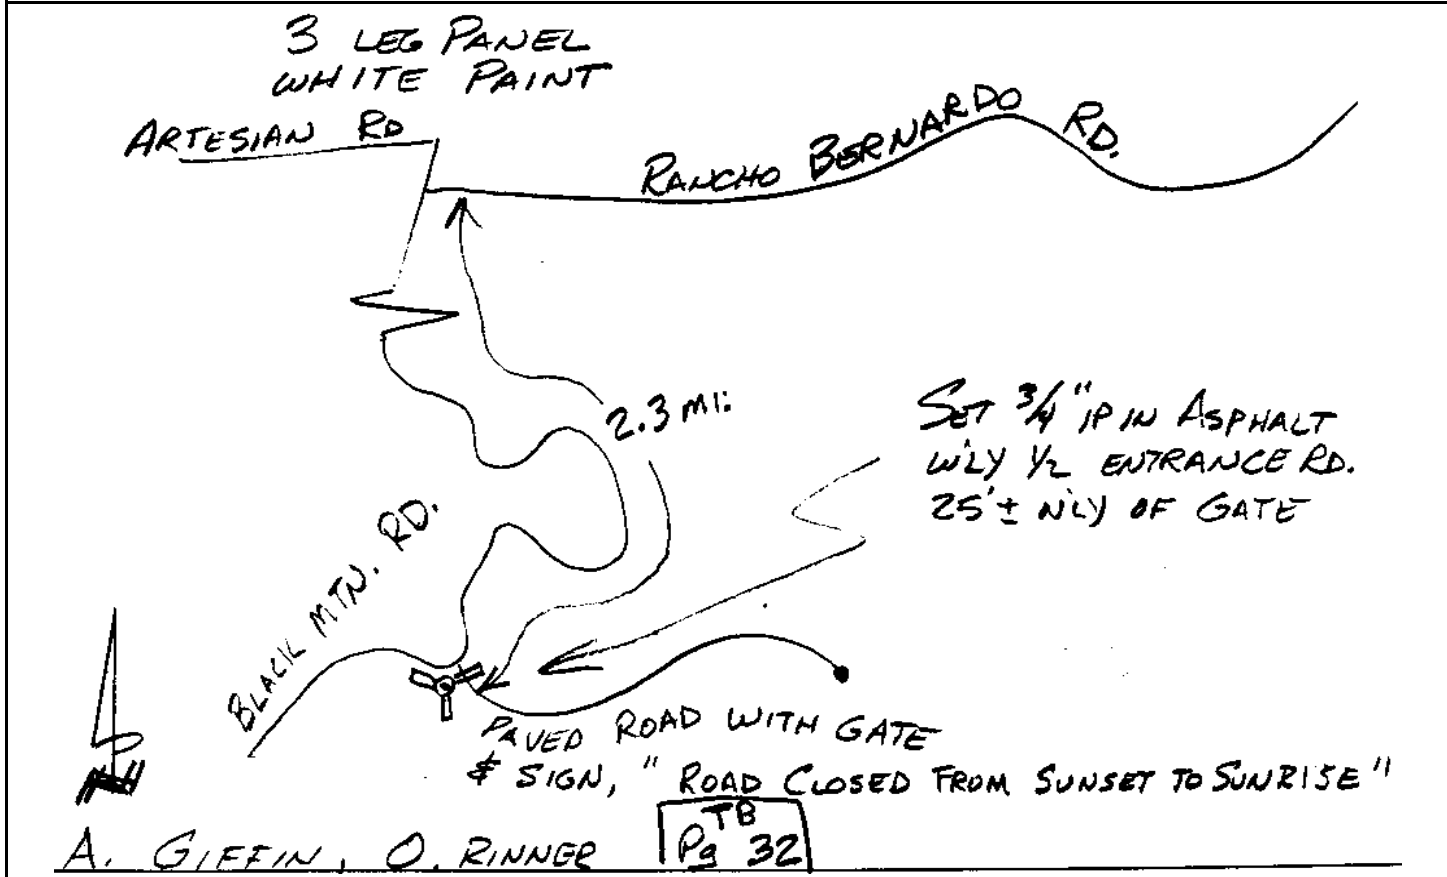 3 LEG PANEL
WHITE PAINT
ARTESIAN RD
RANCHO BERNARDO RD.
2.3 MI:
SET 3/4" IP IN ASPHALT
W'LY 1/2 ENTRANCE RD.
25'± N'LY OF GATE
BLACK MTN. RD.
PAVED ROAD WITH GATE
& SIGN, "ROAD CLOSED FROM SUNSET TO SUNRISE"
N
A. GIFFIN, O. RINNER
TB
Pg 32